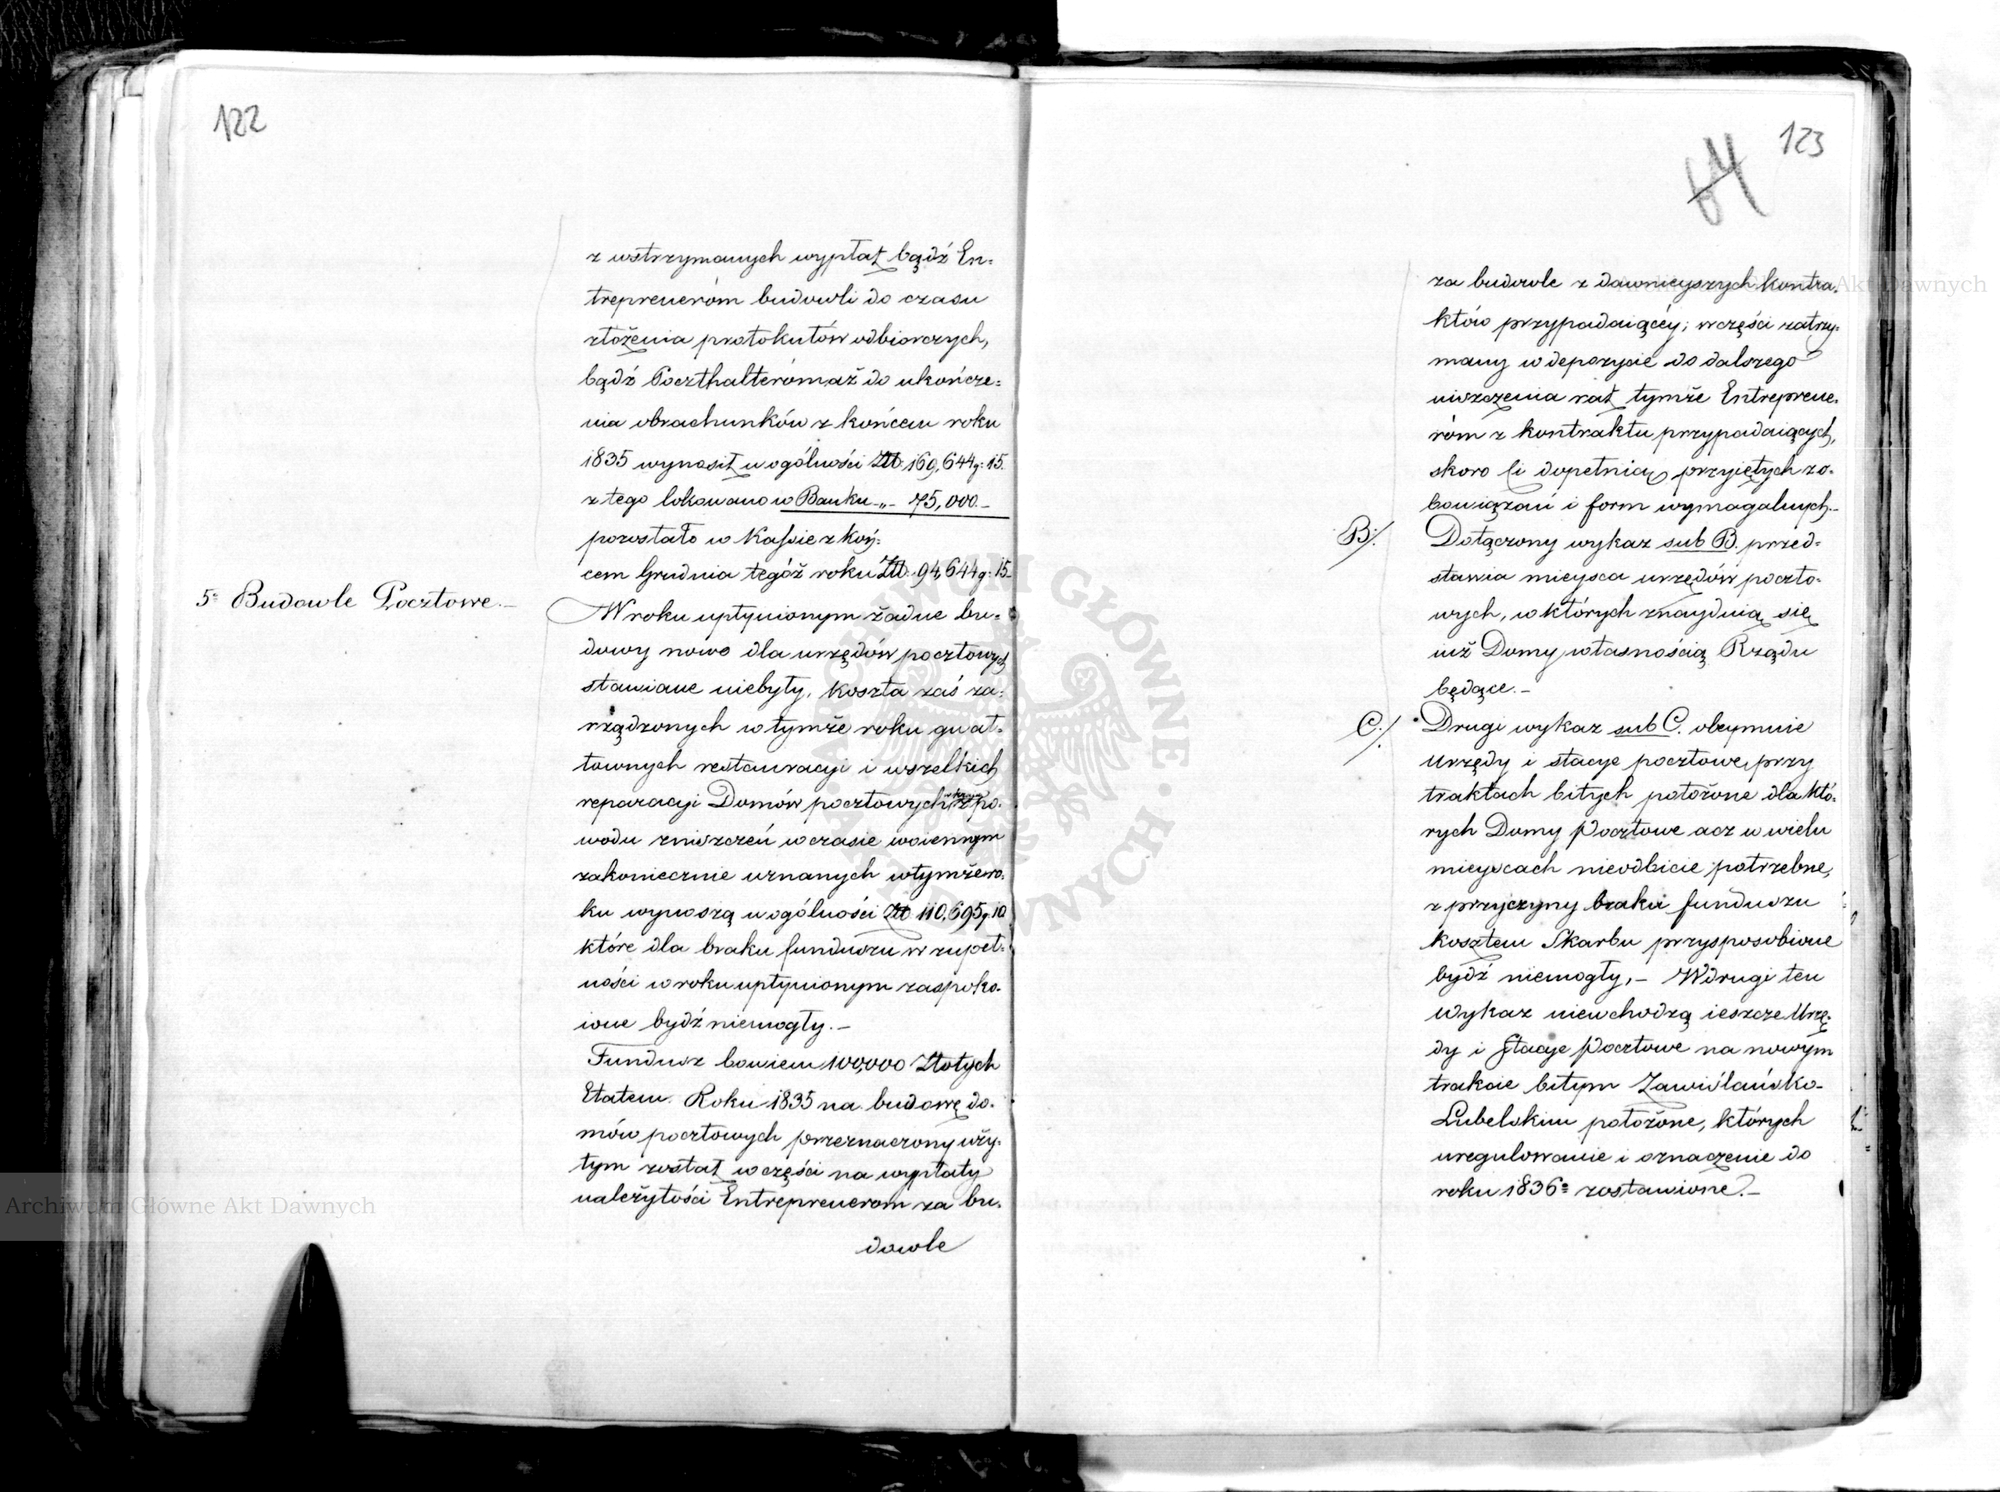 122
z wstrzymanych wypłat bądź En=
trepreneróm budowli do czasu
złożenia protokułów odbiorczych,
bądź Poczthalteróm aż do ukończe=
nia obrachunków z końcem roku
1835 wynosił w ogólności Złt. 169,644 g: 15.
z tego lokowano w Banku -„- 75,000.-
pozostało w Kassie z koń=
cem Grudnia tegóż roku Złt. 94,644 g: 15-
5° Budowle Pocztowe.-
W roku upłynionym żadne bu=
dowy nowe dla urzędów pocztowych
stawiane niebyły, koszta zaś za=
rządzonych w tymże roku gwał=
townych restauracyi i wszelkich
reparacyi Domów pocztowych z po=
wodu zniszczeń w czasie woiennym
zakoniecznie uznanych w tymże ro=
ku wynoszą w ogólności Złt 110,695 g. 10
które dla braku funduszu w zupeł=
ności w roku upłynionym zaspoko=
ione bydź niemogły.-
Fundusz bowiem 100,000 Złotych
Etatem Roku 1835 na budowę do=
mów pocztowych przeznaczony uży=
tym został w części na wypłaty
należytości Entrepreneróm za bu=
dowle
123
64
za budowle z dawnieyszych kontra=
któw przypadaiącéy; w części zatrzy=
many w depozycie do dalszego
uiszczenia rat tymże Entreprene=
róm z kontraktu przypadaiących,
skoro ci dopełnią przyiętych zo=
bowiązań i form wymagalnych.-
B./.
Dołączony wykaz sub B. przed=
stawia mieysca urzędów poczto=
wych, w których znayduią się
iuż Domy własnością Rządu
będące.-
C./.
Drugi wykaz sub C. obeymuie
Urzędy i stacye pocztowe przy
traktach bitych położone dla któ=
rych Domy Pocztowe acz w wielu
mieyscach nieodbicie potrzebne,
z przyczyny braku funduszu
kosztem Skarbu przysposobione
bydź niemogły,- W drugi ten
wykaz niewchodzą ieszcze Urzę=
dy i Stacye Pocztowe na nowym
trakcie bitym Zawiślańsko-
Lubelskim położone, których
uregulowanie i oznaczenie do
roku 1836= zostawione.-
Archiwum Główne Akt Dawnych
Archiwum Główne Akt Dawnych
ARCHIWUM GŁÓWNE · AKT DAWNYCH ·